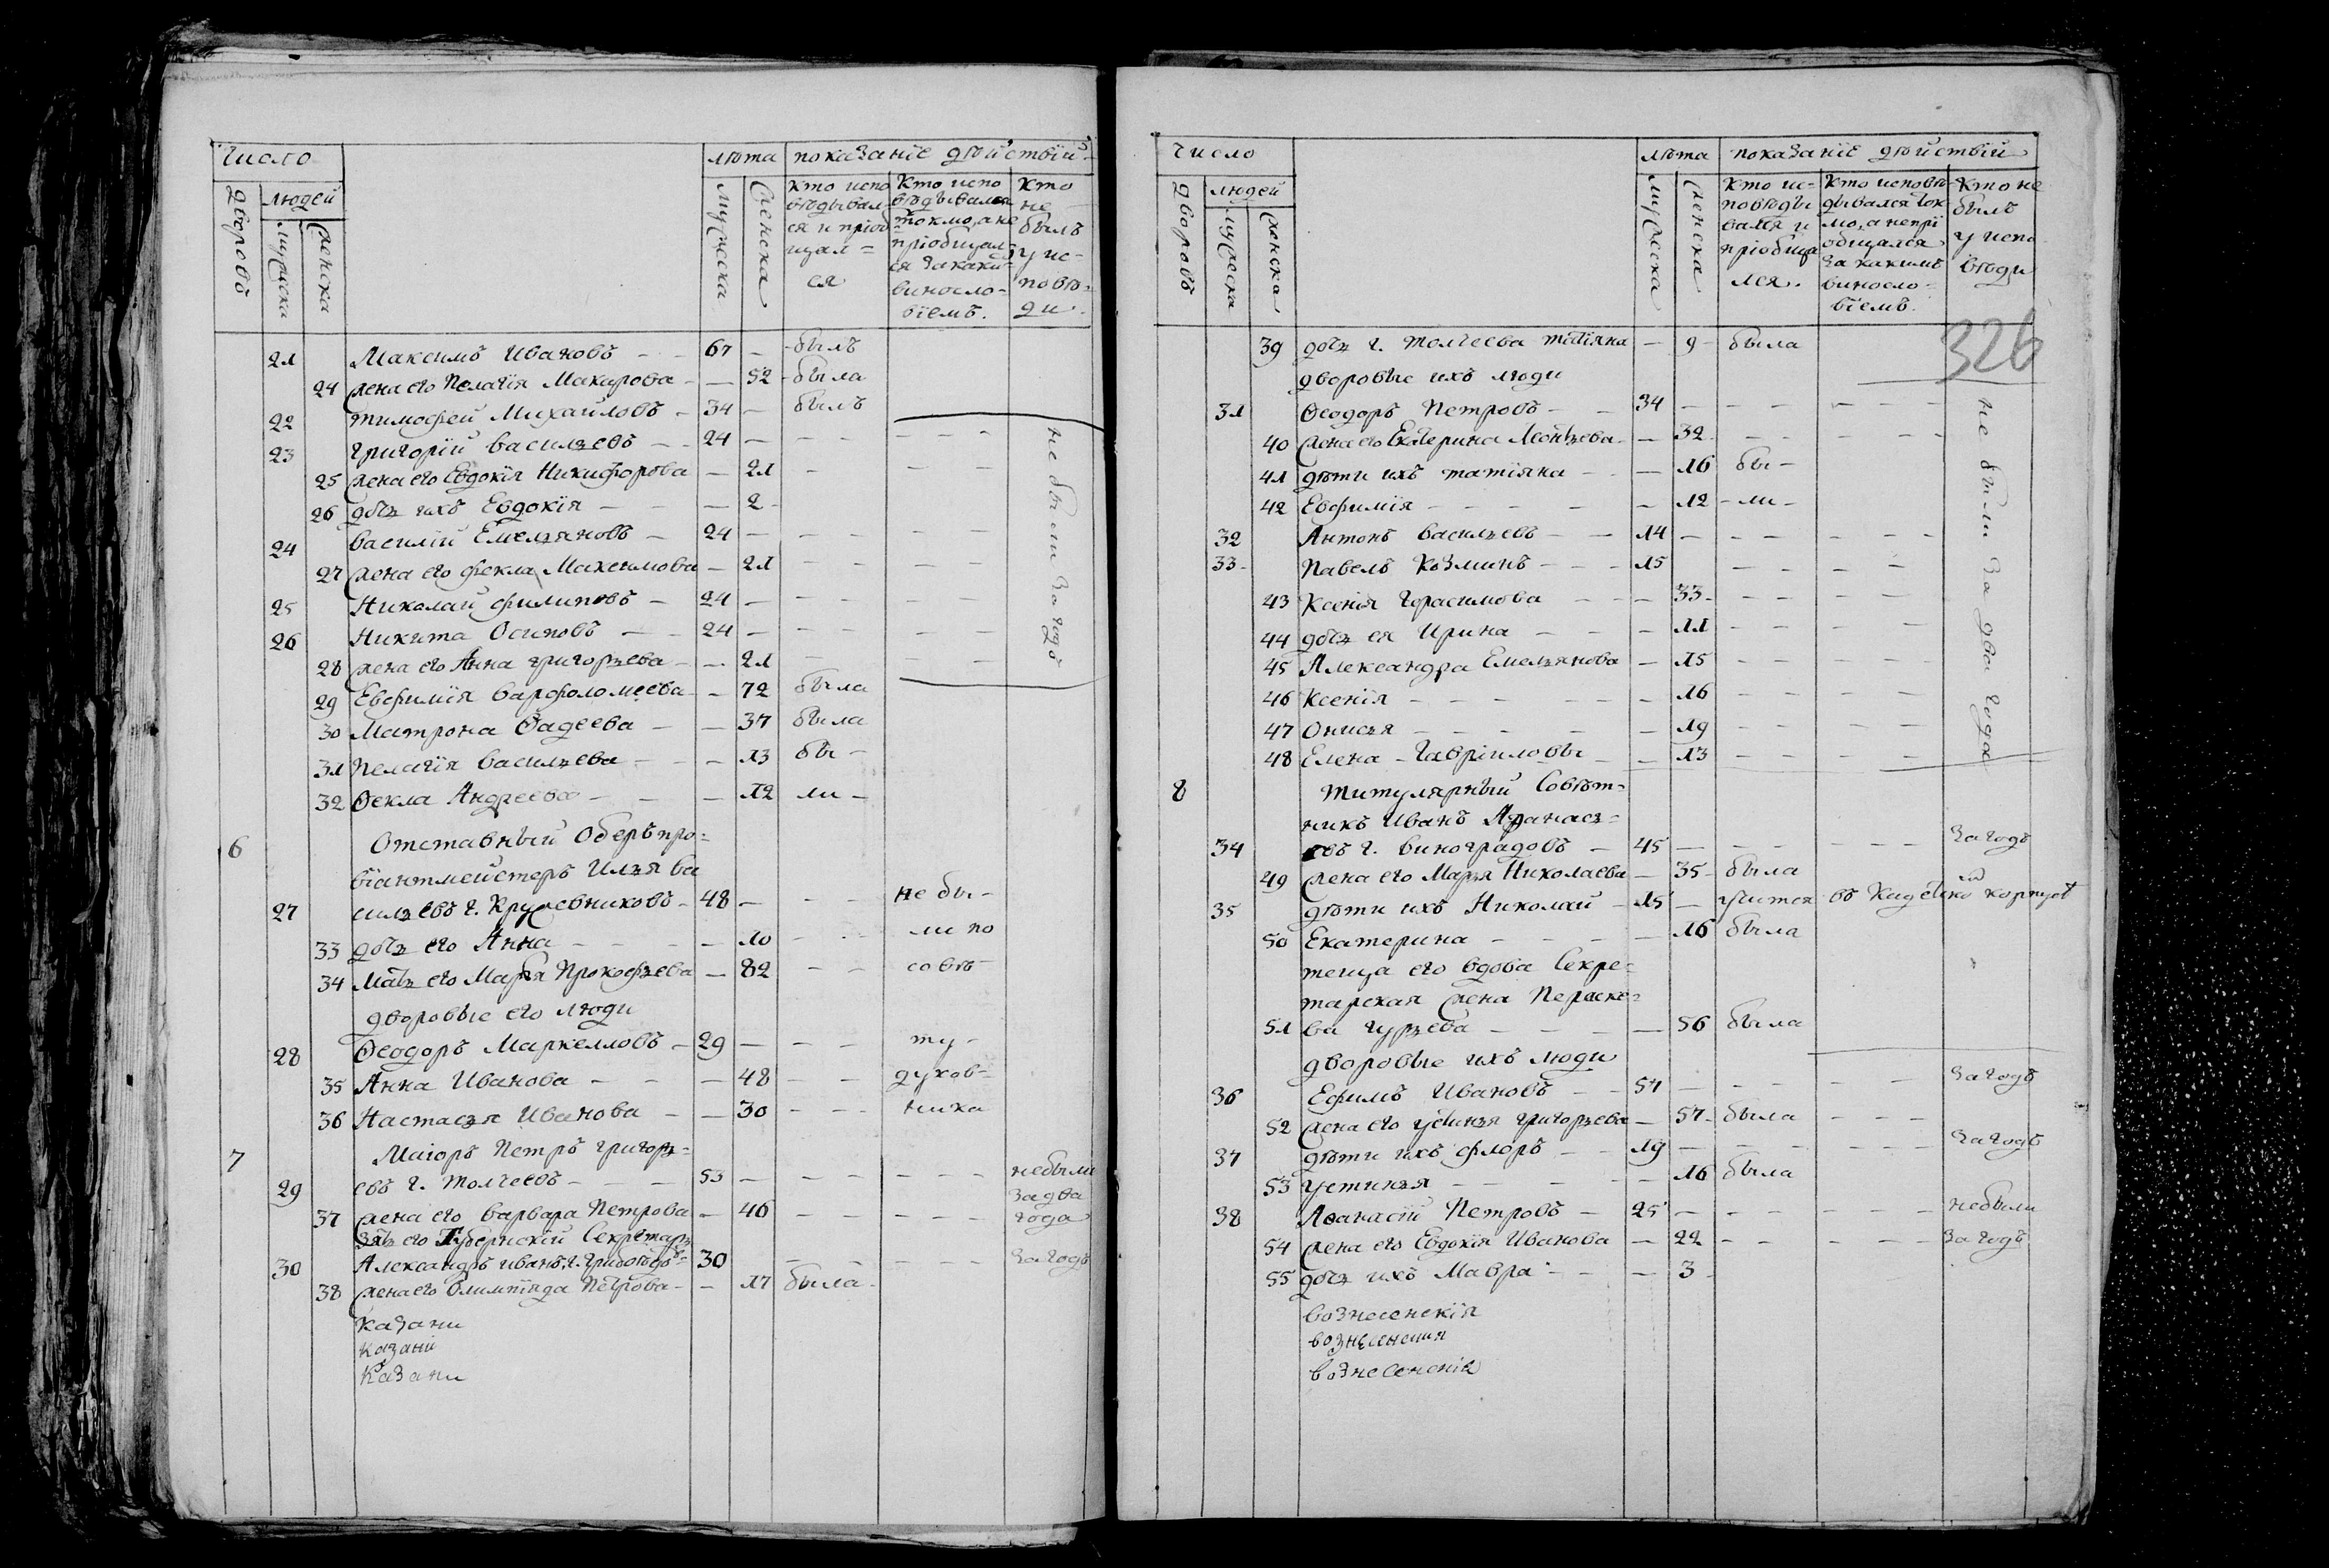 число лѣта показанїе дѣйствїй
дворовъ людей мужеска женска мужеска женска
кто испо
вѣдывал
ся и прїоб
щал=
ся
кто испо
вѣдывался
токмо, а не
прїобщал=
ся за каким
винословїемъ.
кто
не
былъ
у ис-
повѣ-
ди.
21 Максимъ Ивановъ — 67 — былъ
24 жена его Пелагїя Макарова — 52 была
22 тимофей Михайловъ — 34 — былъ
23 григорїй васильевъ — 24 — не были за годъ
25 жена его Евдокїя Никифорова — 21
26 дочь ихъ Евдокїя — 2
24 василїй Емельяновъ — 24 —
27 жена его фекла Максимова — 21
25 Николай филиповъ — 24 —
26 Никита Осиповъ — 24 —
28 жена его Анна григорьева — 21
29 Евфимїя варфоломеева — 72 была
30 Матрона Ѳадеева — 37 была
31 Пелагїя васильева — 13 бы-
32 Ѳекла Андреева — 12 ли-
6 Отставный Оберъ про=
вїантмейстеръ Илья ва
27 сильевъ г. Кружевниковъ — 48 — не бы-
33 дочь его Анна — 10 ли по
34 мать его Марья Прокофьева — 82 совѣ-
дворовые его люди
28 Ѳеодоръ Маркелловъ — 29 — ту-
35 Анна Иванова — 48 духов-
36 Настасья Иванова — 30 ника
7 Маїоръ Петръ григорь=
29 евъ г. Толчеевъ — 53 — небыли
37 жена его варвара Петрова — 46 за два года
зять его Губернскїй Секретарь
30 Александръ иванъ. г. Грибоѣдовъ 30 за годъ
38 жена его Олимпїяда Петрова — 17 была
казани
казани
казани
число лѣта показанїе дѣйствїй
дворовъ людей мужеска женска мужеска женска
кто ис-
повѣды
вался и
прїобща
лся.
кто исповѣ
дывался ток
мо, а непрї
общался
за какимъ
виносло=
вїемъ.
кто не
былъ
у испо
вѣди
326
39 дочь г. толчеева татїяна — 9 — была
дворовые ихъ люди
31 Ѳеодоръ Петровъ — 34 — не были за два года
40 жена его Екатерина Леонтьева — 32
41 дѣти ихъ татїяна — 16 бы-
42 Евфимїя — 12 — ли-
32 Антонъ васильевъ — 14 —
33 Павелъ Козминъ — 15
43 Ксенїя Герасимова — 33
44 дочь ея Ирина — 11
45 Александра Емельянова — 15
46 Ксенїя — 16
47 Онисья — 19
48 Елена Гаврїиловы — 13
8 Титулярный Совѣт=
никъ Иванъ Афанась=
34 евъ г. виноградовъ — 45 — за годъ
49 жена его Марья Николаева — 35 — была
35 дѣти ихъ Николай — 15 — учится въ Кадетско корпусѣ
50 Екатерина — 16 была
теща его вдова Секре=
тарская жена Параске=
51 ва гурьева — 56 была
дворовые ихъ люди
36 Ефимъ Ивановъ — 57 — за годъ
52 жена его устинья григорьева — 57 — была
37 дѣти ихъ флоръ — 19 — за годъ
53 устинья — 16 была
38 Аѳанасїй Петровъ — 25 — небыли
54 жена его Евдокїя Иванова — 22 за годъ
55 дочь ихъ Мавра — 3
вознесенскїя
вознесения
вознесенїя